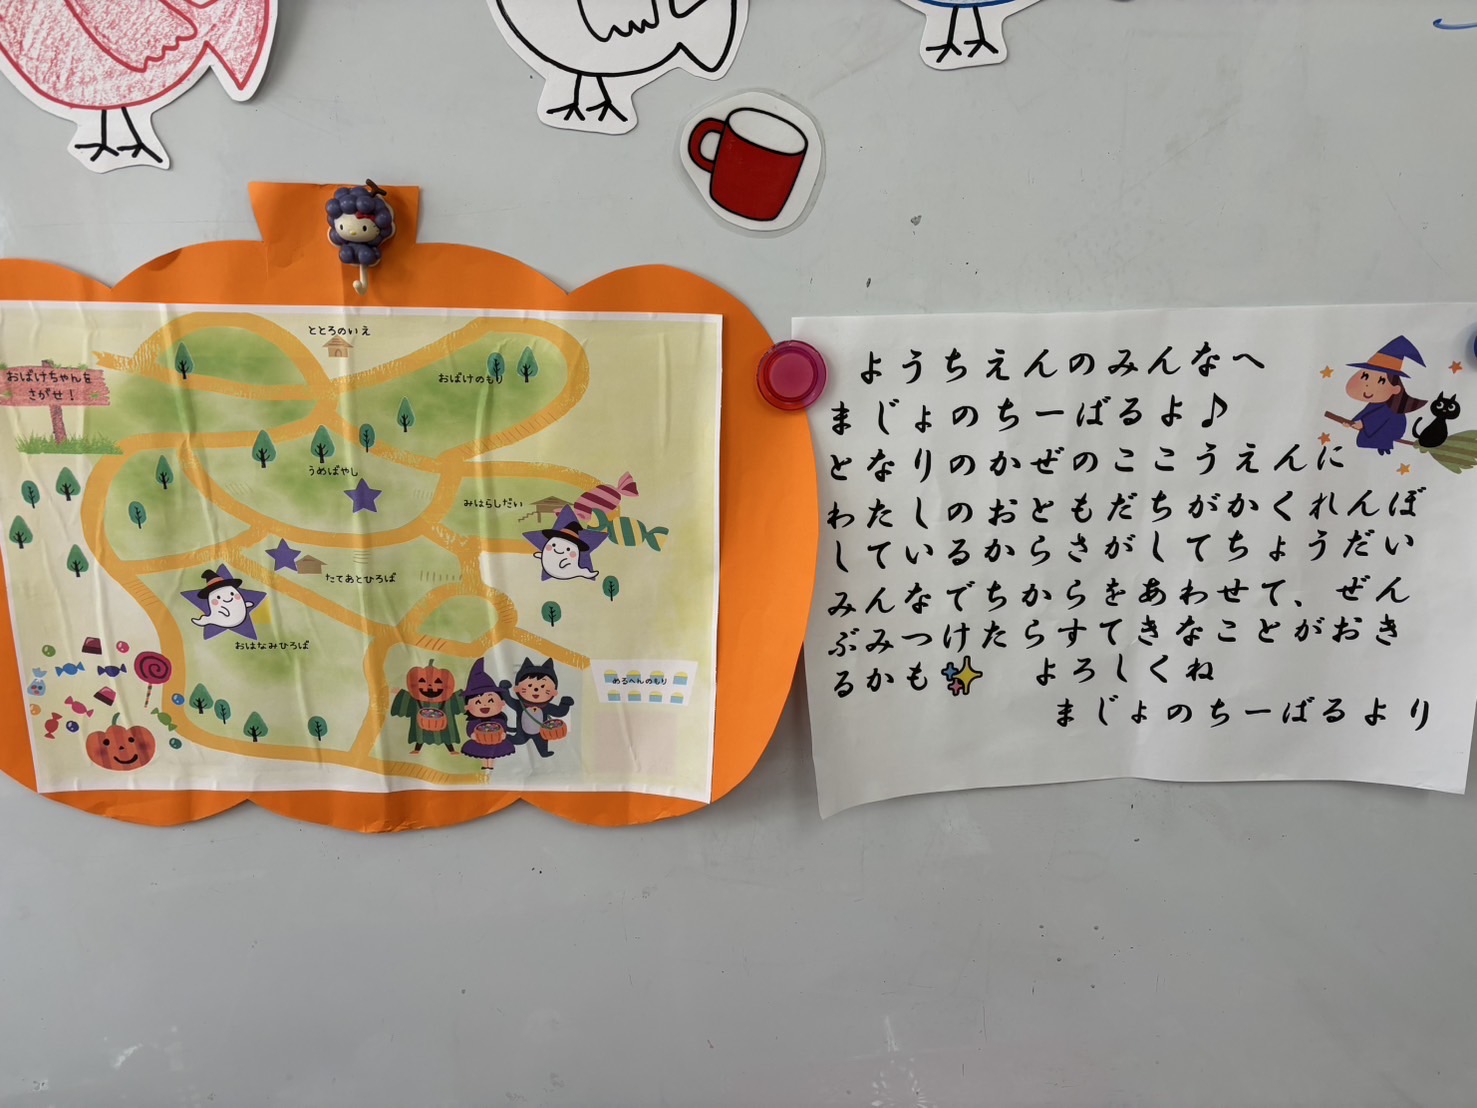 ととろのいえ
おばけちゃんを
さがせ!
おばけのもり
うめばやし
みはらしだい
たてあとひろば
おはなみひろば
めるへんのもり
ようちえんのみんなへ
まじょのちーばるよ♪
となりのかぜのここうえんに
わたしのおともだちがかくれんぼ
しているからさがしてちょうだい
みんなでちからをあわせて、ぜん
ぶみつけたらすてきなことがおき
るかも✨ よろしくね
まじょのちーばるより